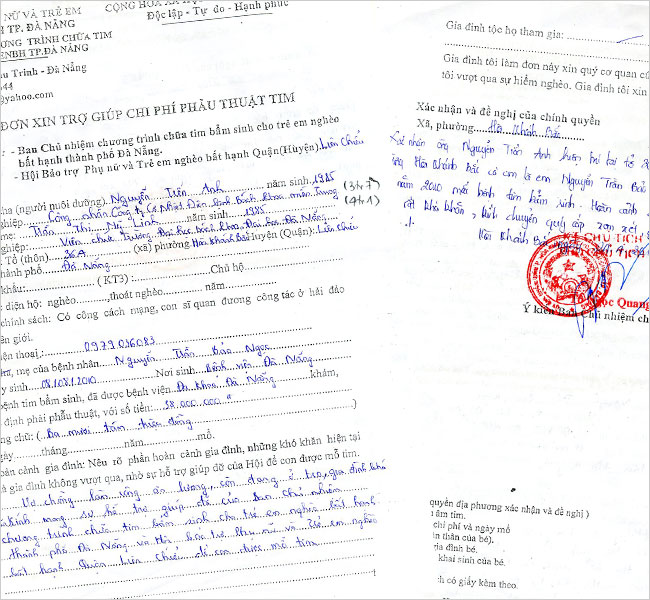 NỮ VÀ TRẺ EM
H TP. ĐÀ NẴNG
ƠNG TRÌNH CHỮA TIM
ENBH TP.ĐÀ NẴNG
u Trinh - Đà Nẵng
44
@yahoo.com
CỘNG HÒA XÃ
Độc lập - Tự do - Hạnh phúc
ĐƠN XIN TRỢ GIÚP CHI PHÍ PHẪU THUẬT TIM
- Ban Chủ nhiệm chương trình chữa tim bẩm sinh cho trẻ em nghèo
bất hạnh thành phố Đà Nẵng.
- Hội Bảo trợ Phụ nữ và Trẻ em nghèo bất hạnh Quận(Huyện) Liên Chiểu
ha (người nuôi dưỡng) Nguyễn Trần Anh năm sinh 1985
hiệp Công nhân Công ty Cổ Phần Bách khoa miền Trung (3tr7)
me: Trần Thị Mỹ Linh năm sinh 1985 (4tr1)
ghiệp: Viên chức trường Đại học bách khoa, Đại học Đà Nẵng
Tổ (thôn) 36A (xã) phường Hòa Khánh Bắc huyện (Quận): Liên Chiểu
thành phố Đà Nẵng
khẩu: ( KT3) : Chủ hộ
diện hộ: nghèo ,thoát nghèo năm
chính sách: Có công cách mạng, con sĩ quan đương công tác ở hải đảo
ên giới.
iện thoại : 0979 036083
, mẹ của bệnh nhân Nguyễn Trần Bảo Ngọc
y sinh 08/08/2010 Nơi sinh Bệnh viện Đà Nẵng
bệnh tim bẩm sinh, đã được bệnh viện Đa Khoa Đà Nẵng khám,
định phải phẫu thuật, với số tiền: 38.000.000 đ
ng chữ: ( Ba mươi tám triệu đồng )
gày tháng năm mổ.
oàn cảnh gia đình: Nêu rõ phần hoàn cảnh gia đình, những khó khăn hiện tại
à gia đình không vượt qua, nhờ sự hỗ trợ giúp đỡ của Hội để con được mổ tim.
Vợ chồng làm công ăn lương, còn đang ở trọ, gia đình khó
Kính mong sự hỗ trợ giúp đỡ của Ban Chủ nhiệm
chương trình chữa tim bẩm sinh cho trẻ em nghèo bất hạnh
thành phố Đà Nẵng và Hội bảo trợ Phụ nữ và Trẻ em nghèo
bất hạnh Quận Liên Chiểu để con được mổ tim
Gia đình tộc họ tham gia:
Gia đình tôi làm đơn này xin quý cơ quan cứ
tôi vượt qua sự hiểm nghèo. Gia đình tôi xin
Xác nhận và đề nghị của chính quyền
Xã, phường Hòa Khánh Bắc
Xác nhận ông Nguyễn Trần Anh hiện trú tại tổ 36
Hòa Khánh Bắc có con là em Nguyễn Trần Bảo
năm 2010 mắc bệnh tim bẩm sinh. Hoàn cảnh
rất khó khăn, kính chuyển quý cấp xem xét
Hòa Khánh Bắc
CHỦ TỊCH
ọc Quang
Ý kiến Ban Chủ nhiệm ch
quyền địa phương xác nhận và đề nghị )
ám tim.
chi phí và ngày mổ
n thân của bé).
gia đình bé.
khai sinh của bé.
h có giấy kèm theo.